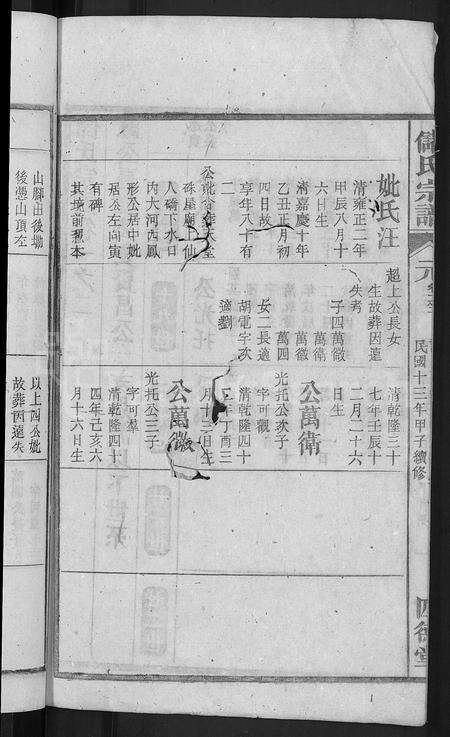 氏宗譜
民國十三年甲子續修
妣氏汪
清雍正二年
甲辰八月十
六日生
清嘉慶十年
乙丑正月初
四日故
享年八十有
二
公妣合葬天堂
廟上仙
人磅下水口
內大河西鳳
形公居中妣
居公左向寅
有碑
其墳前
超上公長女
生故葬因遠
失考
子四萬徵
萬衛
萬四
女二長適
胡電宇次
適劉
清乾隆三十
七年壬辰十
二月二十六
日生
公萬衛
光托公次子
字可觀
清乾隆四十
二年丁酉三
月十三日生
公萬徵
光托公三子
字可羣
清乾隆四十
四年己亥六
月十六日生
山腳田後坳
後憑山頂左
以上四公妣
故葬因遠失